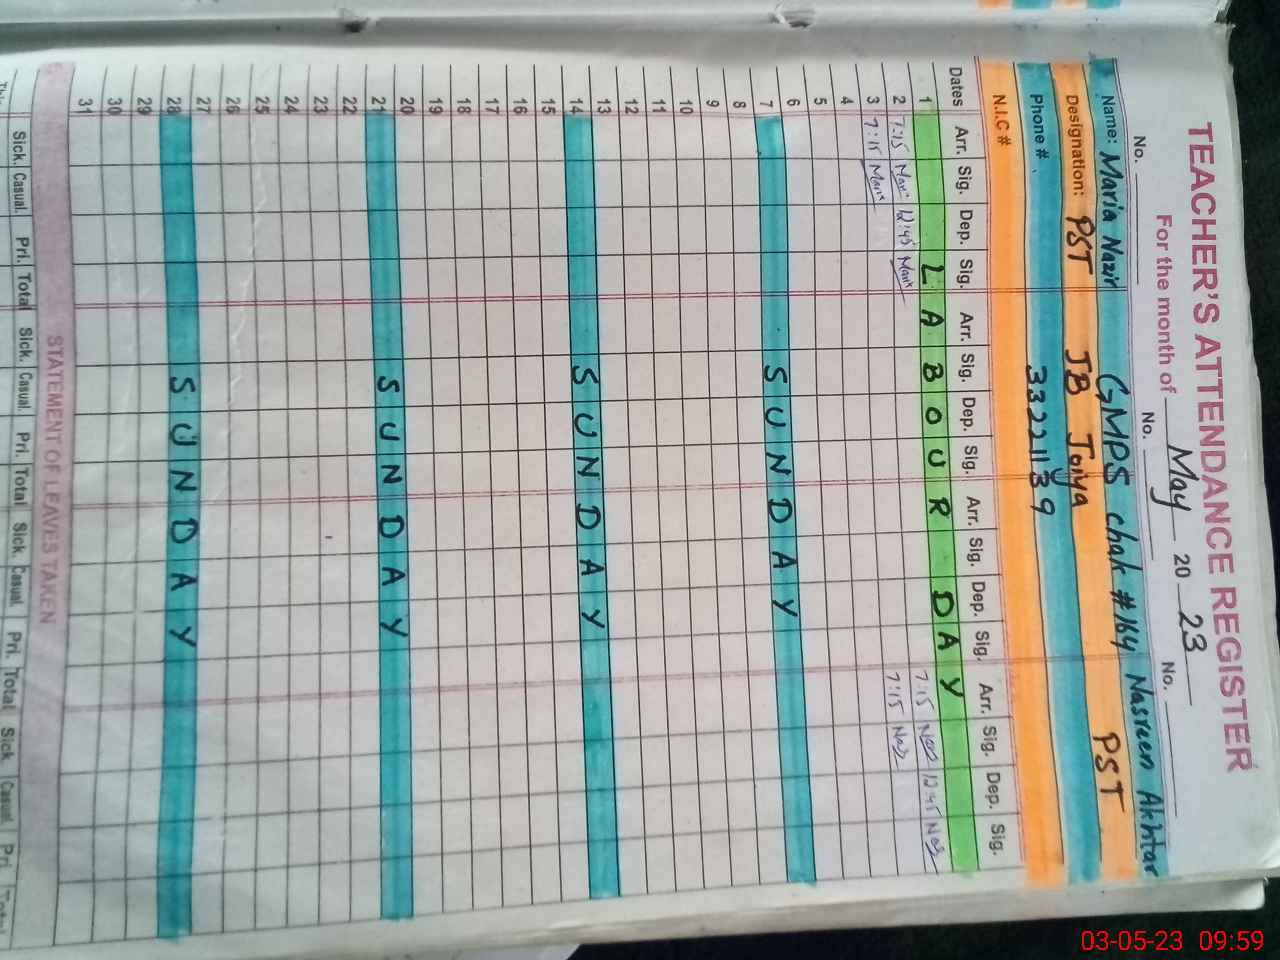 TEACHER'S ATTENDANCE REGISTER
For the month of May 20 23
No. No. No.
Name: Maria Nazir GMPS chak #164 Nasreen Akhtar
Designation: PST JB Joiya PST
Phone # 33221139
N.I.C #
Dates Arr. Sig. Dep. Sig. Arr. Sig. Dep. Sig. Arr. Sig. Dep. Sig. Arr. Sig. Dep. Sig.
1 LABOUR DAY
2 7:15 12:45 7:15 12:45
3 7:15 7:15
4
5
6
7 SUNDAY
8
9
10
11
12
13
14 SUNDAY
15
16
17
18
19
20
21 SUNDAY
22
23
24
25
26
27
28 SUNDAY
29
30
31
STATEMENT OF LEAVES TAKEN
Sick. Casual. Pri. Total Sick. Casual. Pri. Total Sick. Casual. Pri. Total Sick. Casual Pri
03-05-23 09:59